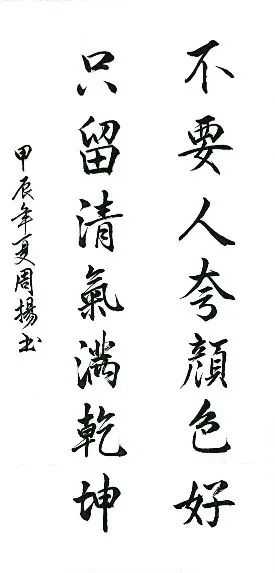 不要人夸顔色好
只留清氣满乾坤
甲辰年夏周揚书